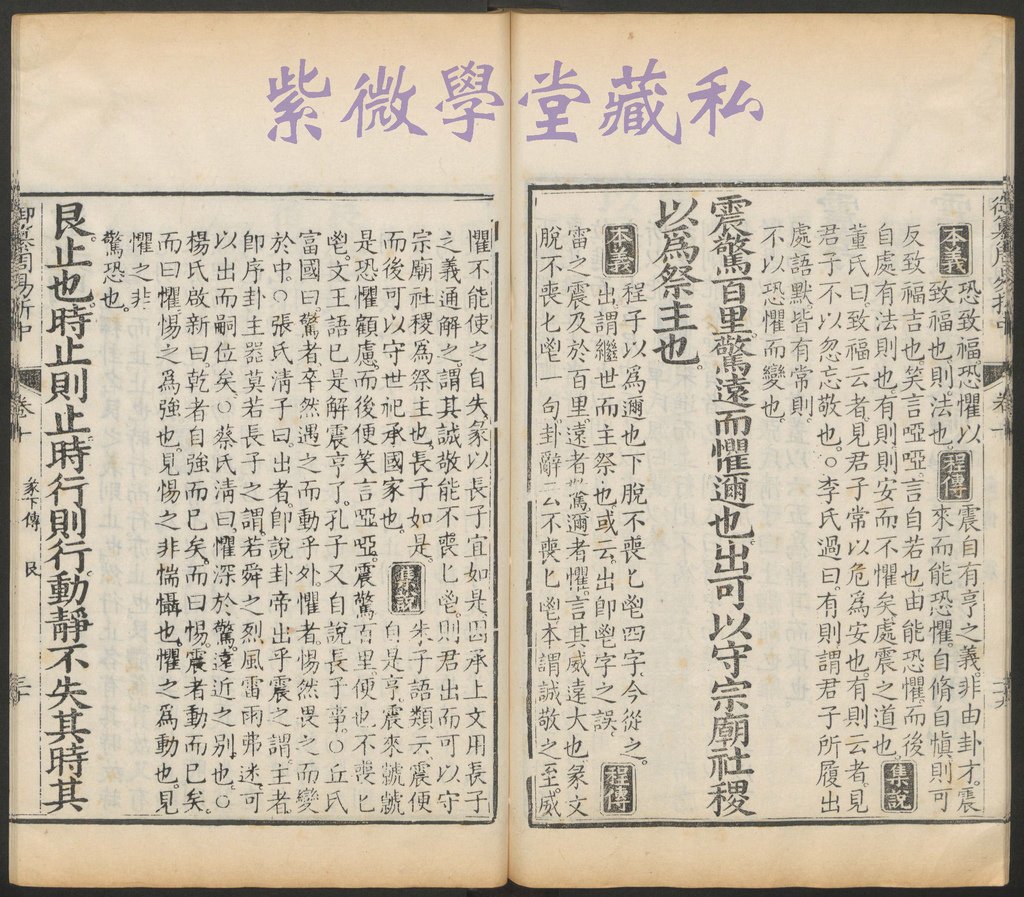 紫微學堂藏私
本義
恐致福恐懼以
致福也則法也
程傳
震自有亨之義非由卦才震
來而能恐懼自脩自愼則可
反致福吉也笑言啞啞言自若也由能恐懼而後
自處有法則也有則則安而不懼矣處震之道也
集說
董氏曰致福云者見君子常以危爲安也有則云者見
君子不以忽忘敬也○李氏過曰有則謂君子所履出
處語默皆有常則
不以恐懼而變也
震驚百里驚遠而懼邇也出可以守宗廟社稷
以爲祭主也
本義
程子以爲邇也下脫不喪匕鬯四字今從之
出謂繼世而主祭也或云出卽鬯字之誤
程傳
雷之震及於百里遠者驚邇者懼言其威遠大也彖文
脫不喪匕鬯一句卦辭云不喪匕鬯本謂誠敬之至威
懼不能使之自失彖以長子宜如是因承上文用長子
之義通解之謂其誠敬能不喪匕鬯則君出而可以守
宗廟社稷爲祭主也長子如是
而後可以守世祀承國家也
集說
朱子語類云震便
自是亨震來虩虩
是恐懼顧慮而後便笑言啞啞震驚百里便也不喪匕
鬯文王語已是解震亨了孔子又自說長子事○丘氏
富國曰驚者卒然遇之而動乎外懼者惕然畏之而變
於中○張氏清子曰出者卽說卦帝出乎震之謂主者
卽序卦主器莫若長子之謂若舜之烈風雷雨弗迷可
以出而嗣位矣○蔡氏淸曰懼深於驚遠近之別也○
楊氏啟新曰乾者自強而已矣而曰惕震者動而已矣
而曰懼惕之爲強也見惕之非惴懾也懼之爲動也見
懼之非
驚恐也
艮止也時止則止時行則行動靜不失其時其
卷十
彖下傳
艮
三十